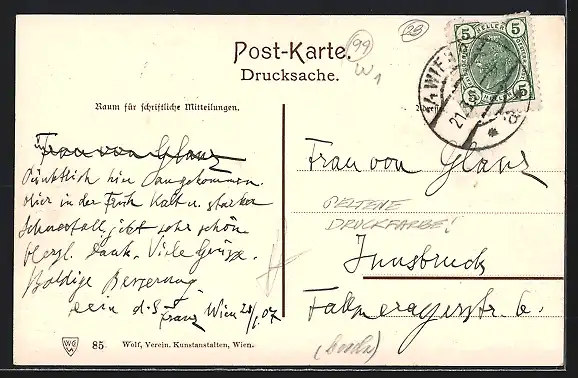 99
W1
23
Post-Karte.
Drucksache.
HELLER
5 5
5 5
WIEN
21
Raum für schriftliche Mitteilungen.
Frau von Glanz
Pünktlich hier angekommen.
Hier in der Früh Kalt u. starker
Schneefall, jetzt sehr schön
Herzl. Dank. Viele Grüsse.
Baldige Besserung
d. S.
Franz Wien 20/1 07
Frau von Glanz
SELTENE
DRUCKFARBE!
Innsbruck
Fallmerayerstr. 6.
85 Wolf, Verein. Kunstanstalten, Wien.